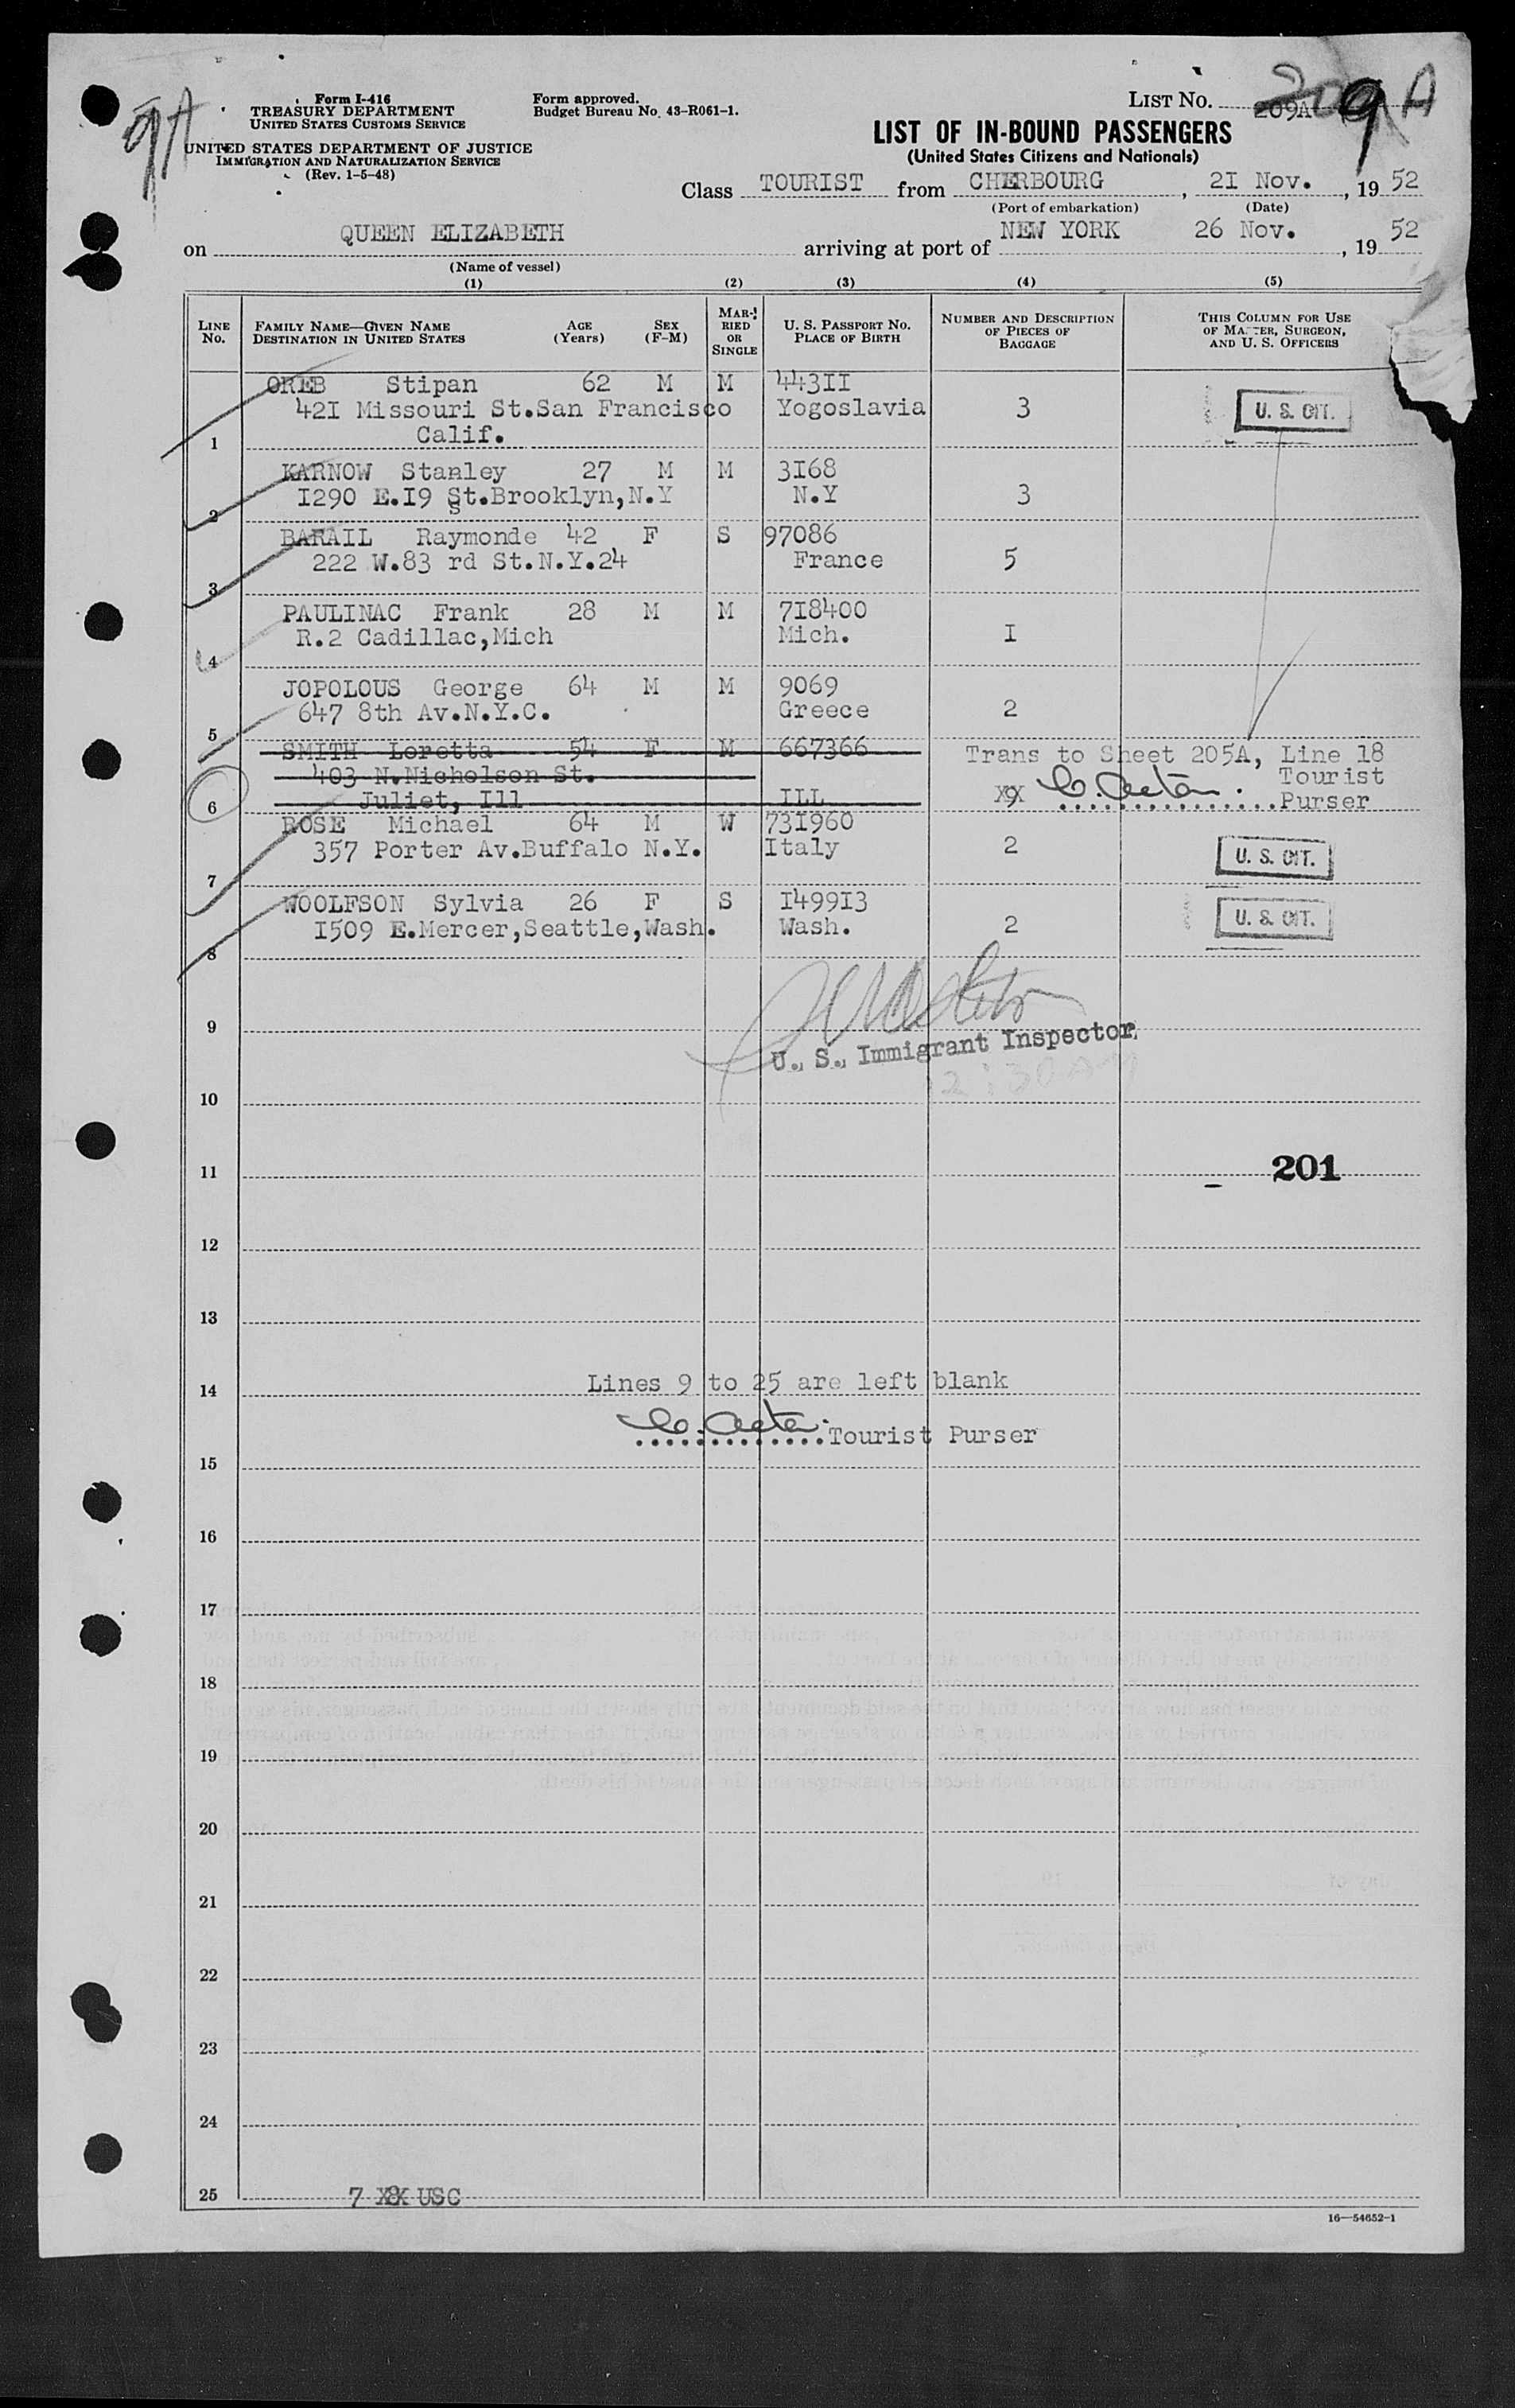 9A
Form I-416
TREASURY DEPARTMENT
UNITED STATES CUSTOMS SERVICE
UNITED STATES DEPARTMENT OF JUSTICE
IMMIGRATION AND NATURALIZATION SERVICE
(Rev. 1-5-48)
Form approved.
Budget Bureau No. 43-R061-1.
LIST NO. 209A 9A
LIST OF IN-BOUND PASSENGERS
(United States Citizens and Nationals)
Class TOURIST from CHERBOURG, 2I Nov., 19 52
(Port of embarkation) (Date)
on QUEEN ELIZABETH arriving at port of NEW YORK 26 Nov., 19 52
(Name of vessel)
(1) (2) (3) (4) (5)
LINE No. FAMILY NAME—GIVEN NAME DESTINATION IN UNITED STATES AGE (Years) SEX (F-M) MARRIED OR SINGLE U. S. PASSPORT NO. PLACE OF BIRTH NUMBER AND DESCRIPTION OF PIECES OF BAGGAGE THIS COLUMN FOR USE OF MASTER, SURGEON, AND U. S. OFFICERS
OREB Stipan 62 M M 443II
42I Missouri St.San Francisco Yogoslavia 3 U. S. CIT.
1 Calif.
KARNOW Stanley 27 M M 3I68
I290 E.I9 St.Brooklyn,N.Y N.Y 3
2
BARAIL Raymonde 42 F S 97086
222 W.83 rd St.N.Y.24 France 5
3
PAULINAC Frank 28 M M 7I8400
R.2 Cadillac,Mich Mich. I
4
JOPOLOUS George 64 M M 9069
647 8th Av.N.Y.C. Greece 2
5
SMITH Loretta 54 F M 667366 Trans to Sheet 205A, Line 18
403 N.Nicholson St. Tourist
6 Juliet, Ill ILL Purser
ROSE Michael 64 M W 73I960
357 Porter Av.Buffalo N.Y. Italy 2 U. S. CIT.
7
WOOLFSON Sylvia 26 F S I499I3
I509 E.Mercer,Seattle,Wash. Wash. 2 U. S. CIT.
8
9
U. S. Immigrant Inspector
12:30 AM
10
11 201
12
13
14 Lines 9 to 25 are left blank
Tourist Purser
15
16
17
18
19
20
21
22
23
24
25 7 USC
16—54652-1